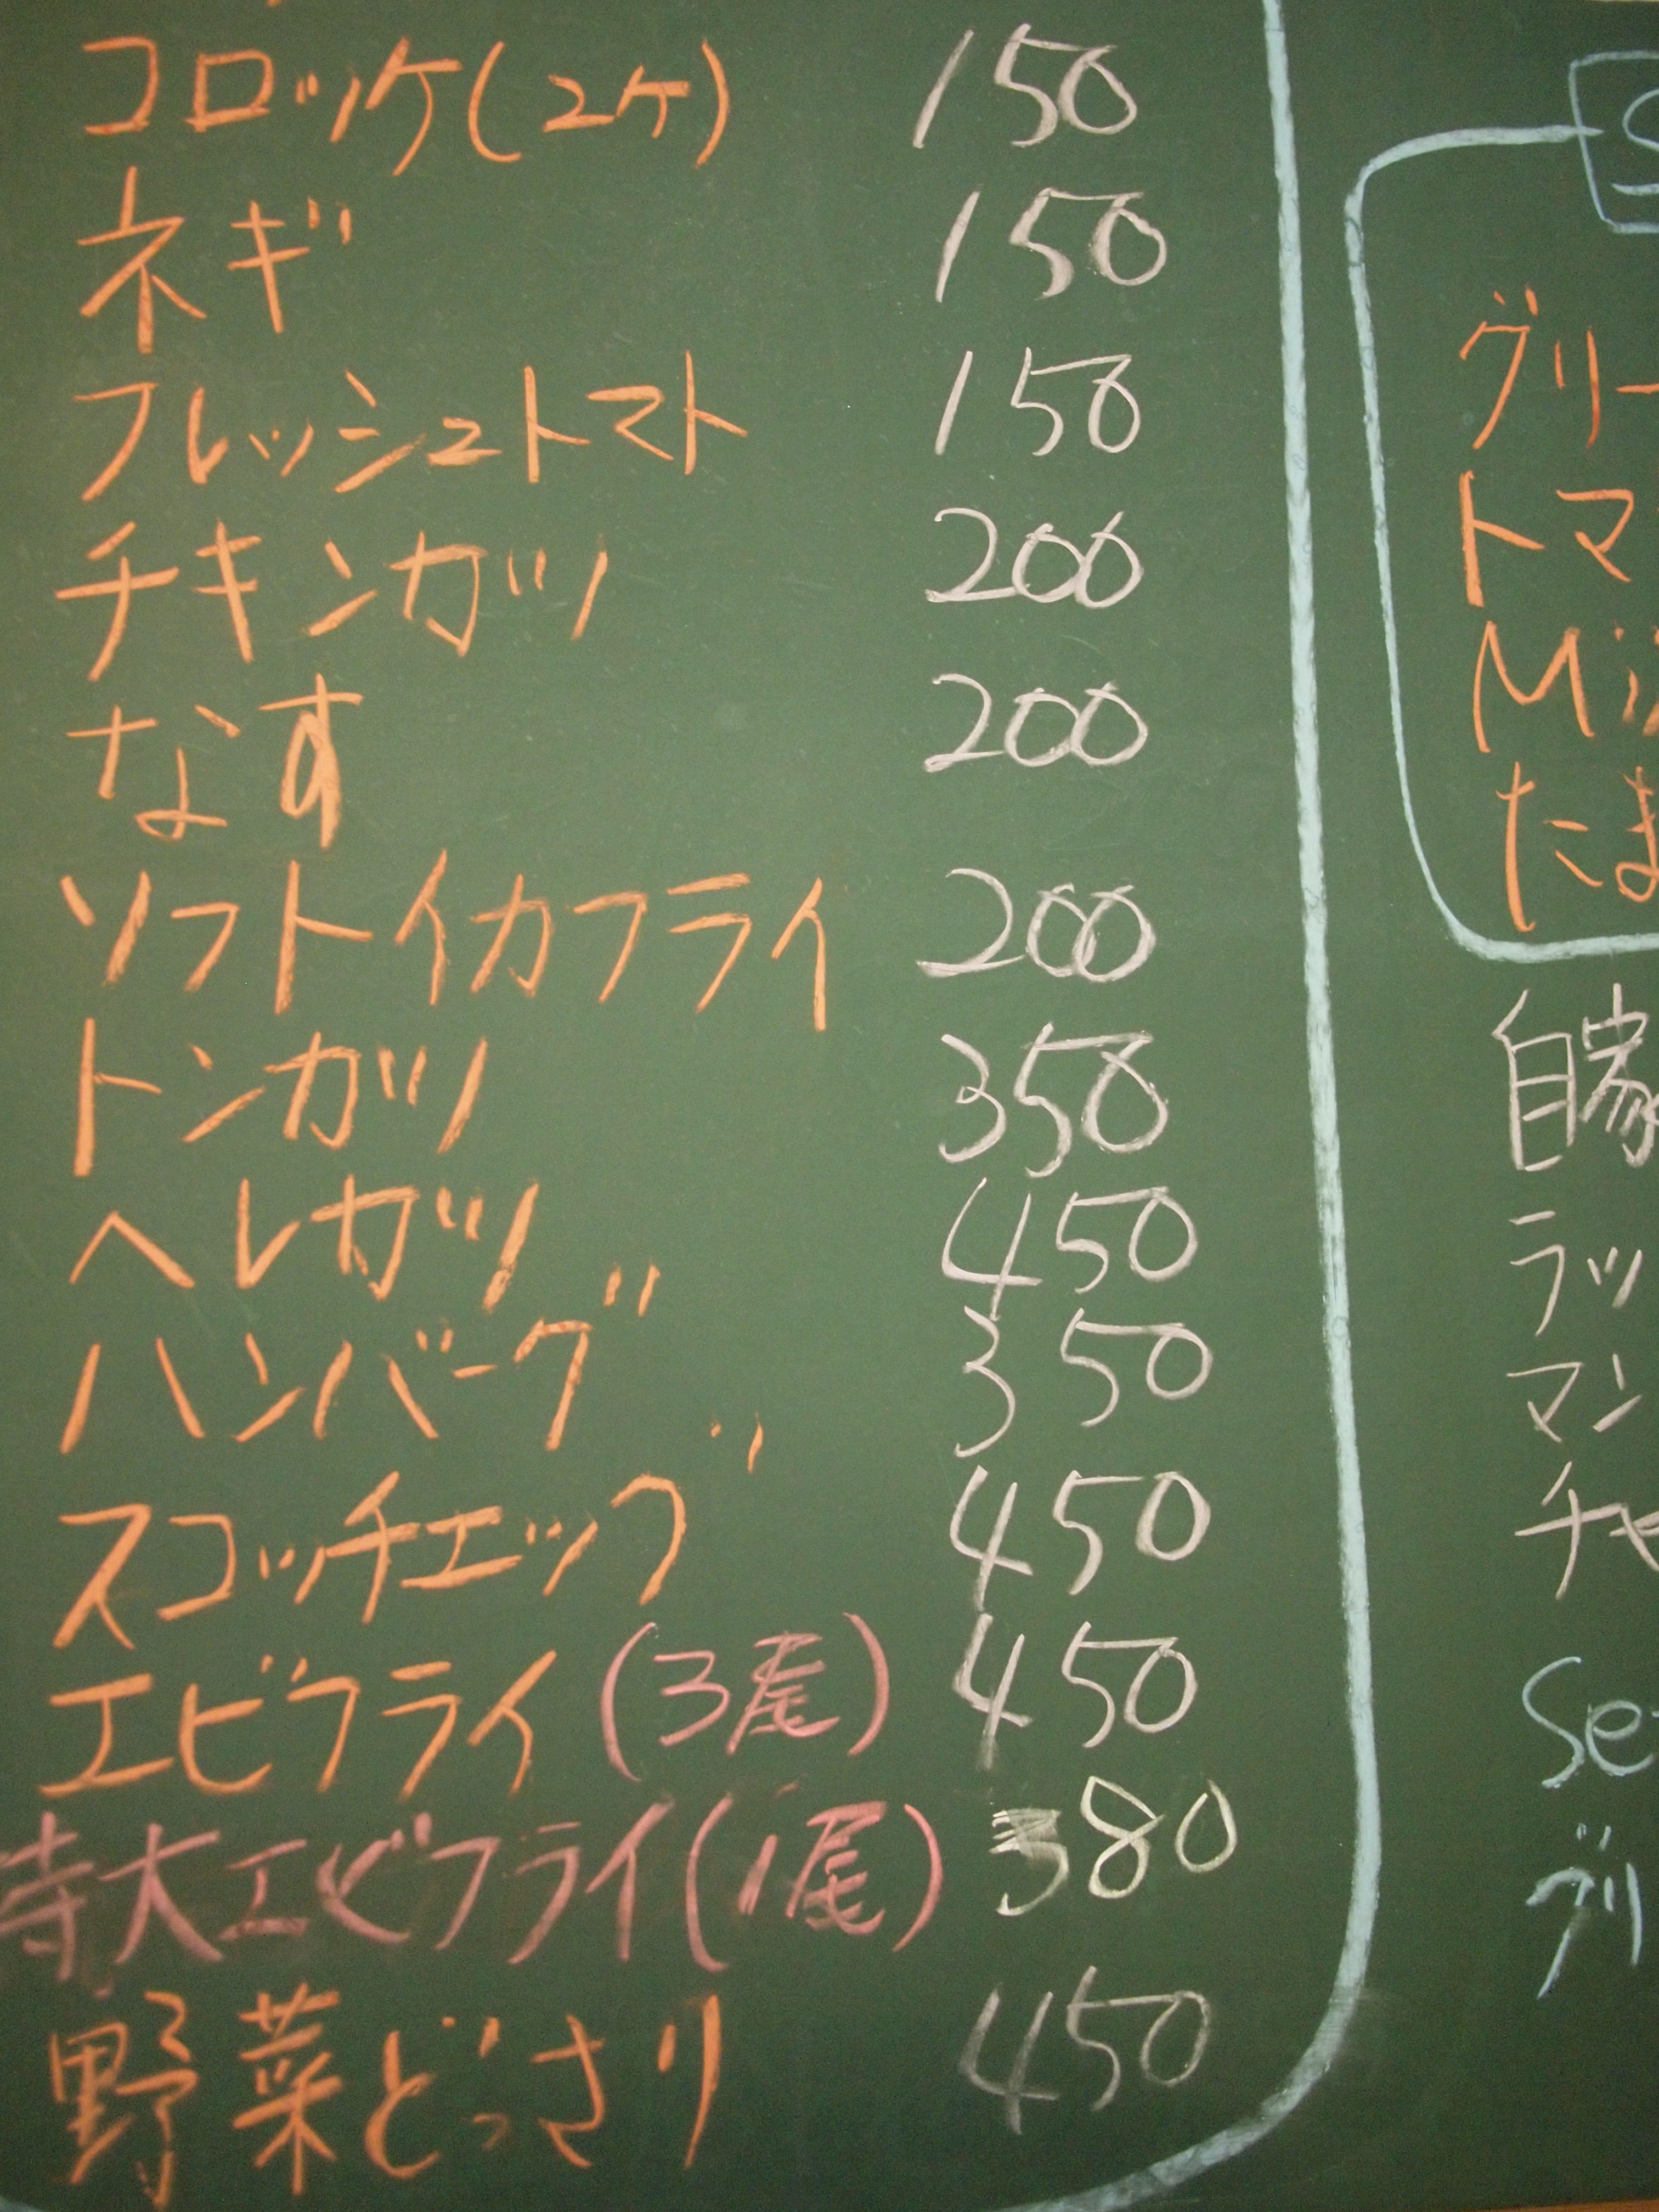 コロッケ(2ヶ) 150
ネギ 150
フレッシュトマト 150
チキンカツ 200
なす 200
ソフトイカフライ 200
トンカツ 350
ヘレカツ 450
ハンバーグ 350
スコッチエッグ 450
エビフライ(3尾) 450
特大エビフライ(1尾) 380
野菜どっさり 450
S
グリー
トマ
Mi
たま
自家
ラッ
マン
チャ
Se
グリ